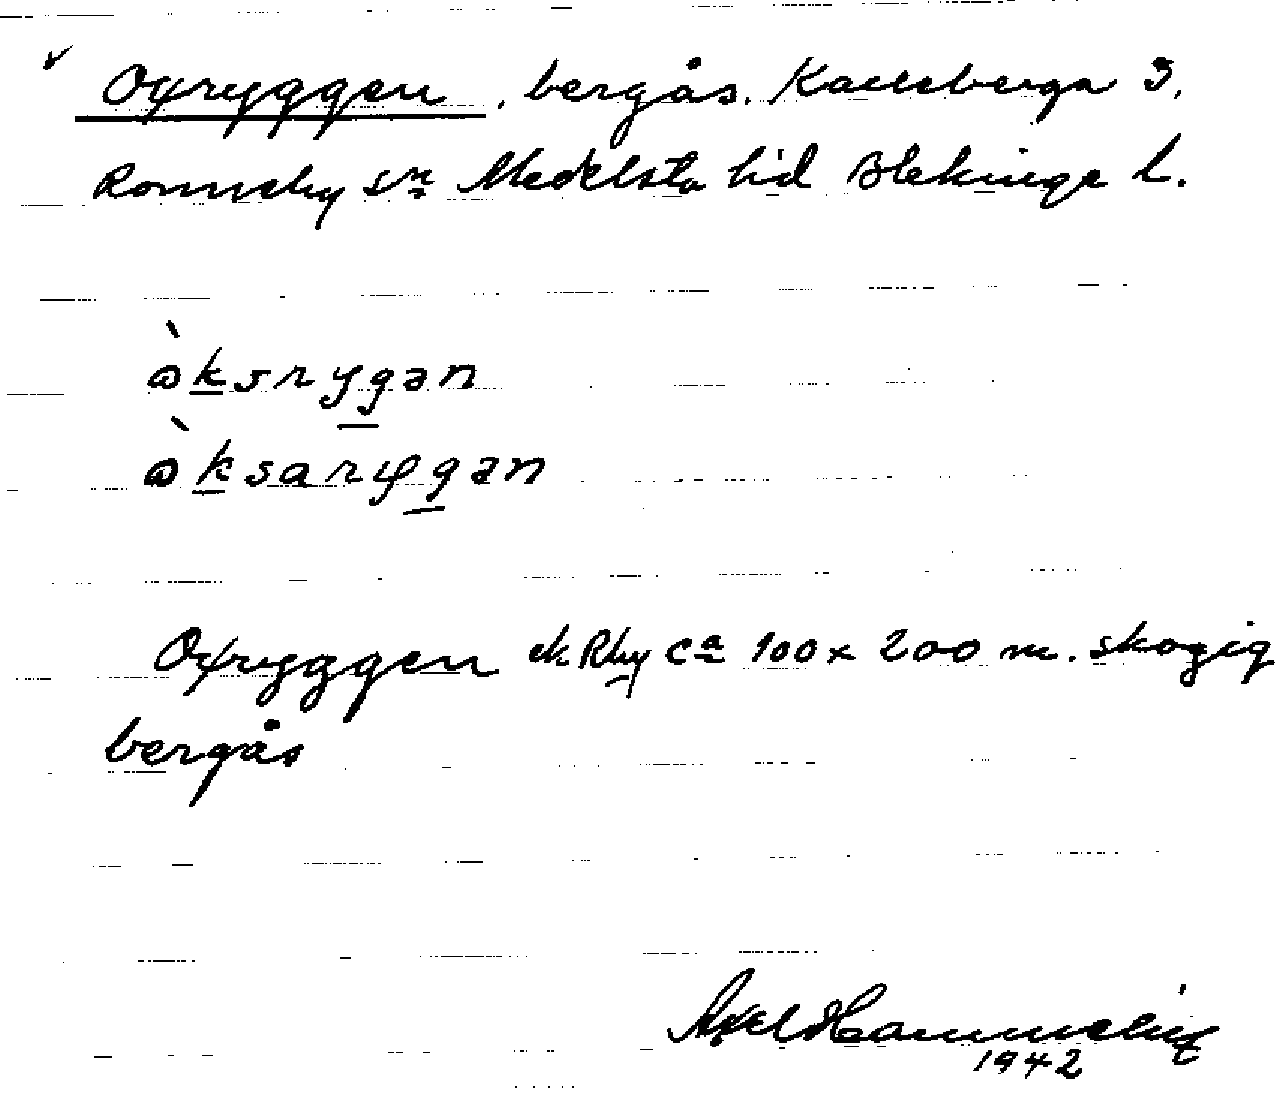 Oxryggen, bergås. Karlsberga 3,
Ronneby sn Medelsta hd Blekinge l.
ɷ̀ksrygən
ɷ̀ksarygən
Oxryggen ek Rby ca 100 x 200 m. skogig
bergås
Axel
1942